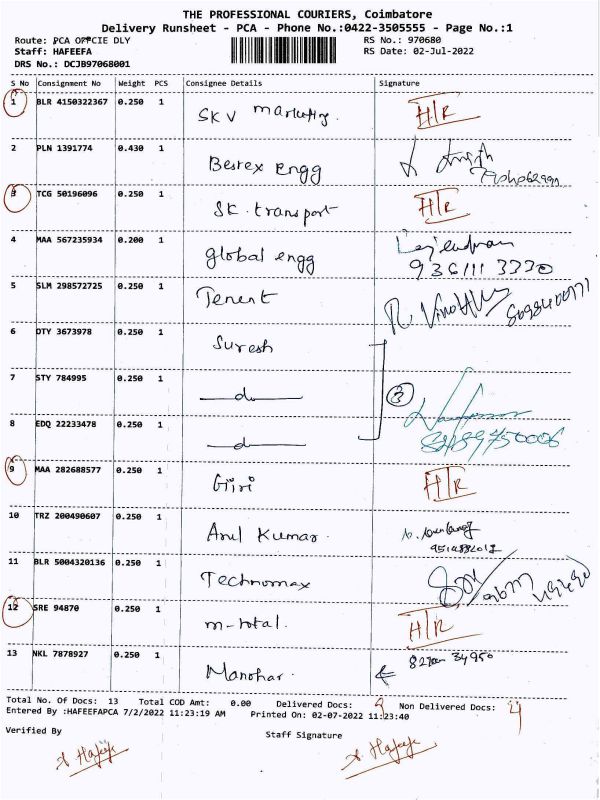 THE PROFESSIONAL COURIERS, Coimbatore
Delivery Runsheet - PCA - Phone No.:0422-3505555 - Page No.:1
Route: PCA OFFCIE DLY
RS No.: 970680
Staff: HAFEEFA
RS Date: 02-Jul-2022
DRS No.: DCJB97068001
S No Consignment No Weight PCS Consignee Details Signature
1 BLR 4150322367 0.250 1 SKV marketing. H/R
2 PLN 1391774 0.430 1 Bestex Engg
3 TCG 50196096 0.250 1 SK. transport H/R
4 MAA 567235934 0.200 1 global engg
9361113330
5 SLM 298572725 0.250 1 Tenent
6 OTY 3673978 0.250 1 Suresh
7 STY 784995 0.250 1 do 3
8 EDQ 22233478 0.250 1 do
9 MAA 282688577 0.250 1 Giri H/R
10 TRZ 200490607 0.250 1 Arul Kumar.
11 BLR 5004320136 0.250 1 Technomax
12 SRE 94870 0.250 1 m-total. H/R
13 NKL 7878927 0.250 1 Manohar.
Total No. Of Docs: 13 Total COD Amt: 0.00 Delivered Docs: 9 Non Delivered Docs: 4
Entered By :HAFEEFAPCA 7/2/2022 11:23:19 AM Printed On: 02-07-2022 11:23:40
Verified By Staff Signature
Hafeefa Hafeefa